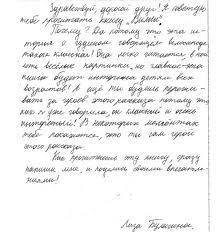 Здравствуй, дорогой друг! Я советую
тебе прочитать книгу "
Почему? Да потому что эта ис-
тория о чудесном говорящем
такая Она легко читается в
весёлые картинки, но главное - эта
книга будет интересна детям всех
возрастов! А ещё ты будешь пережи-
вать за героя этого рассказа потому что
как я уже говорила, он и очень
В некоторых моментах
тебе покажется, что ты сам герой
этого рассказа.
Как прочитаешь эту книгу, сразу
пиши мне и поделись своими впечат-
лениями!
Лиза